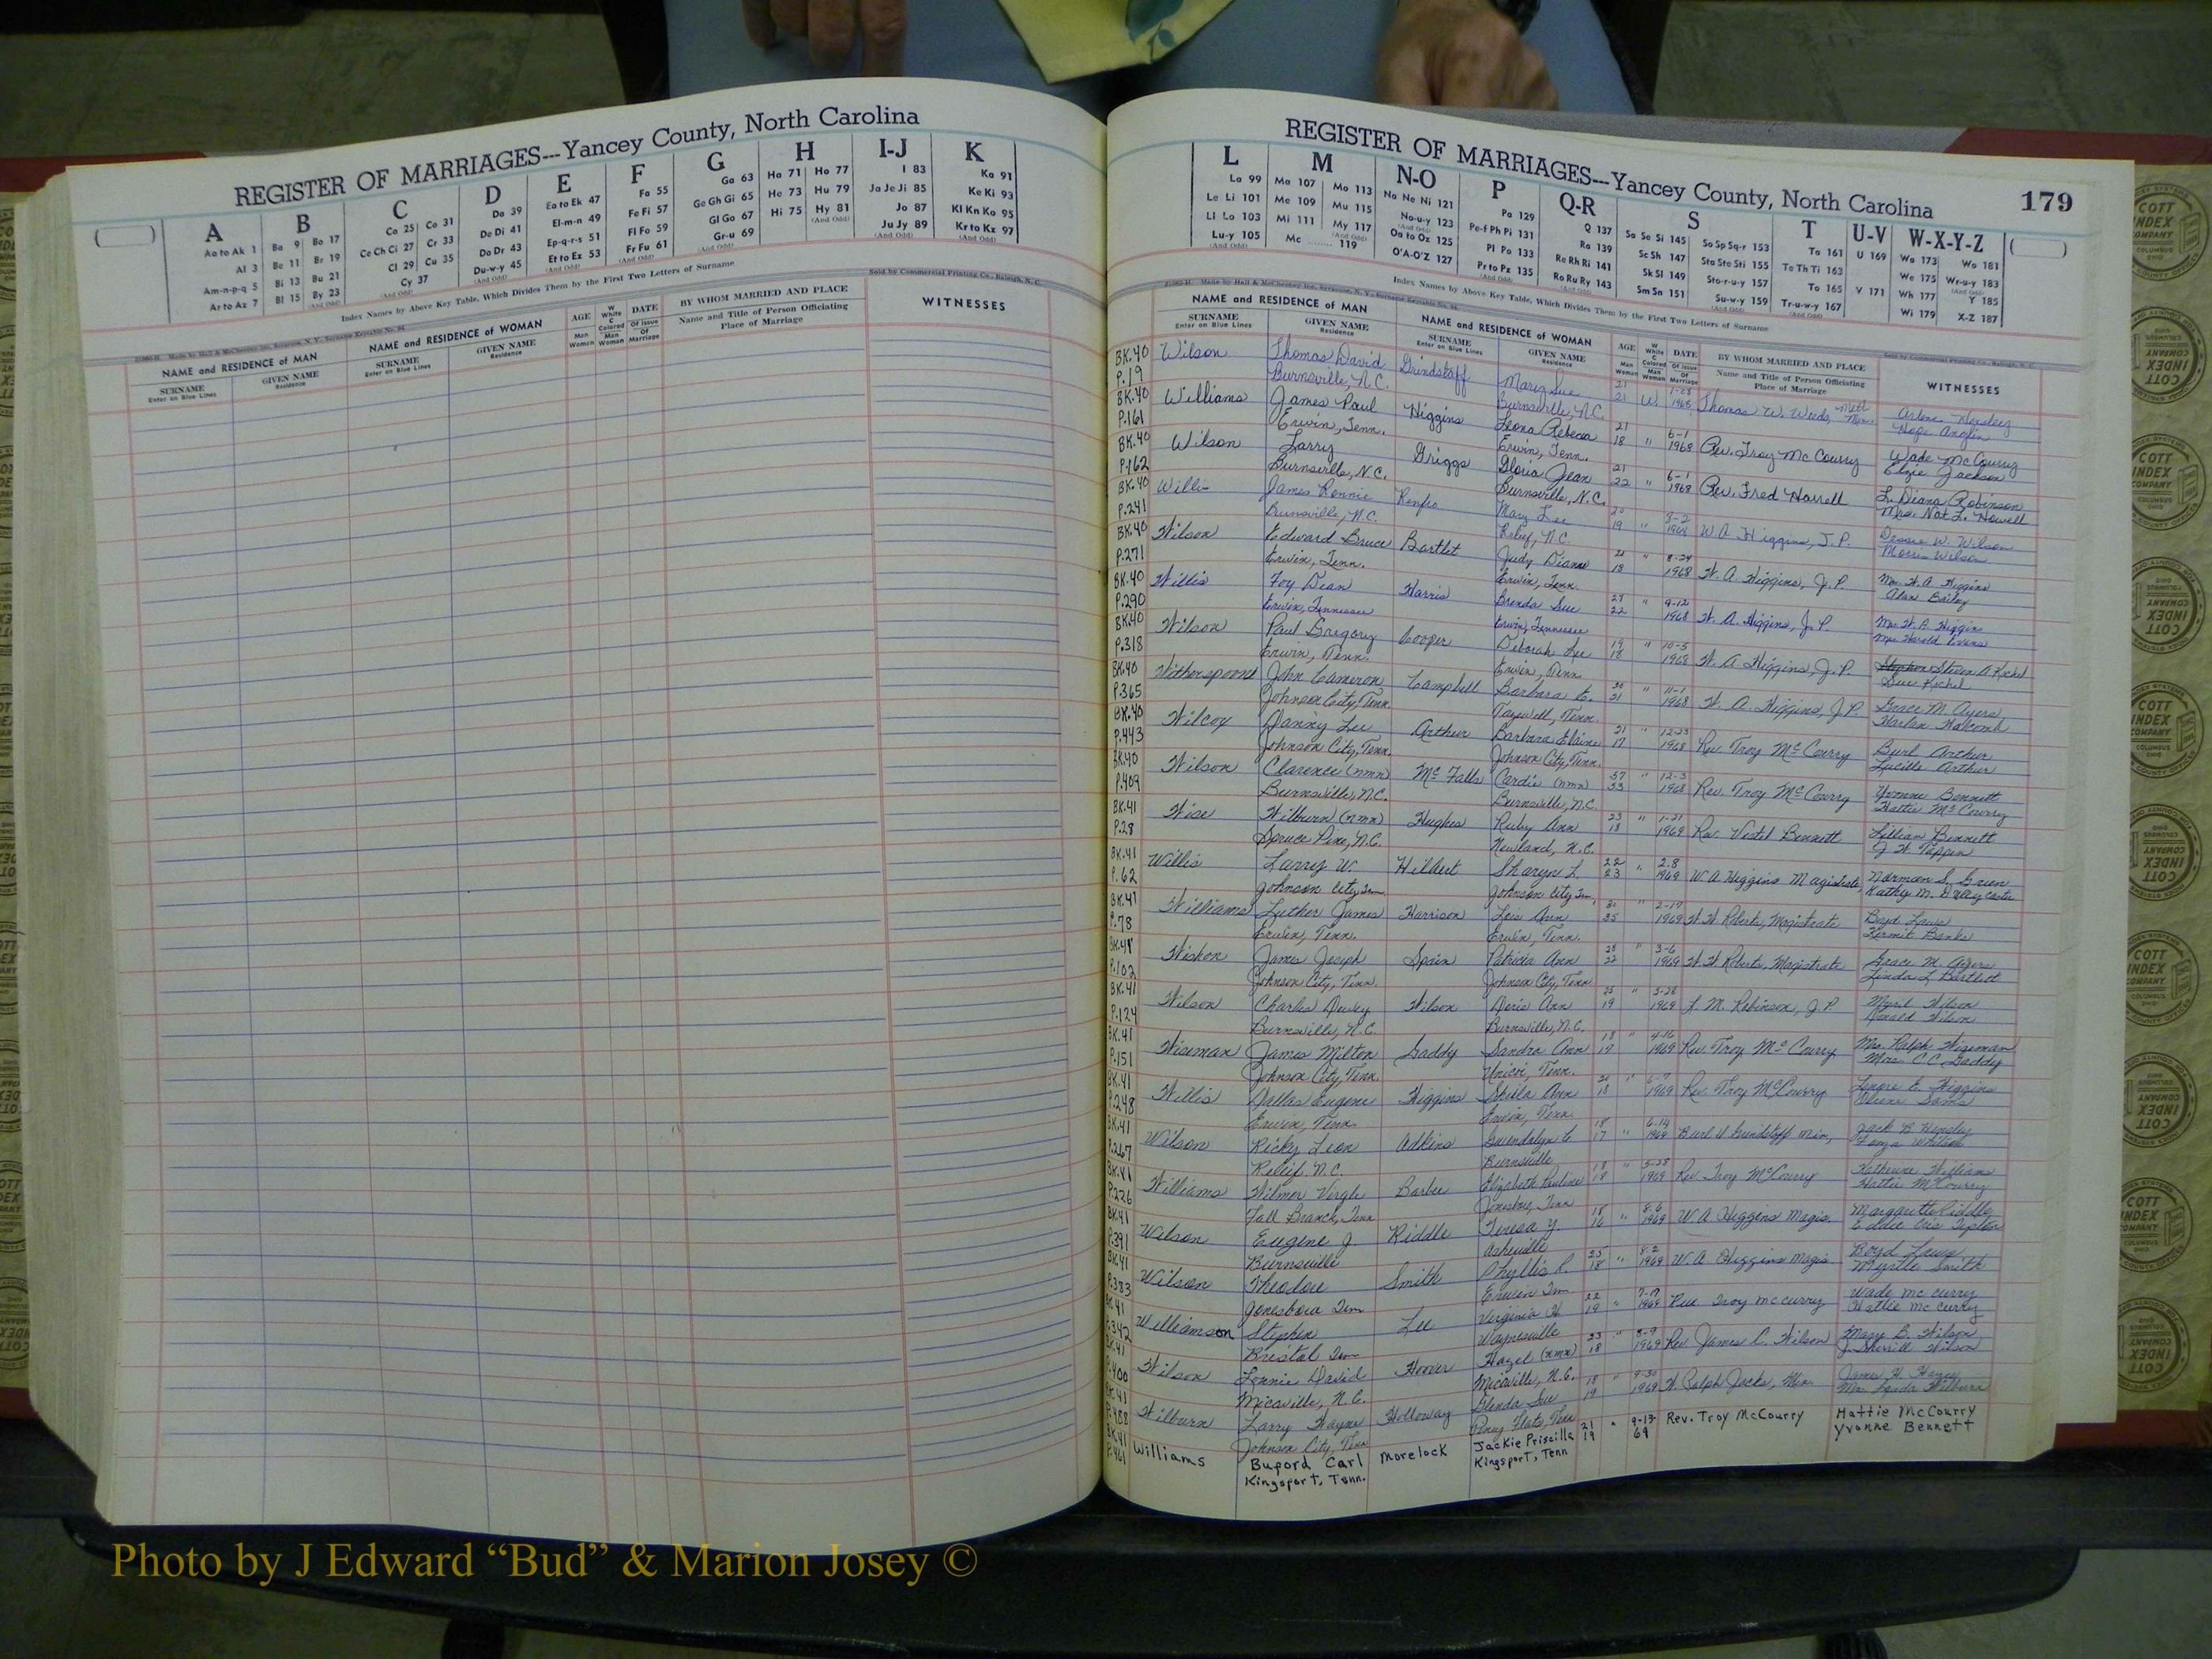 REGISTER OF MARRIAGES---Yancey County, North Carolina
A B C D E F G H I-J K
Aa to Ak 1 Ba 9 Bo 17 Ca 25 Co 31 Da 39 Ea to Ek 47 Fa 55 Ga 63 Ha 71 Ho 77 I 83 Ka 91
Al 3 Be 11 Br 19 Ce Ch Ci 27 Cr 33 De Di 41 El-m-n 49 Fe Fi 57 Ge Gh Gi 65 He 73 Hu 79 Ja Je Ji 85 Ke Ki 93
Am-n-p-q 5 Bi 13 Bu 21 Cl 29 Cu 35 Do Dr 43 Ep-q-r-s 51 Fl Fo 59 Gl Go 67 Hi 75 Hy 81 Jo 87 Kl Kn Ko 95
Ar to Az 7 Bl 15 By 23 Cy 37 Du-w-y 45 Et to Ez 53 Fr Fu 61 Gr-u 69 Ju Jy 89 Kr to Kz 97
Index Names by Above Key Table, Which Divides Them by the First Two Letters of Surname
Sold by Commercial Printing Co., Raleigh, N. C.
NAME and RESIDENCE of MAN NAME and RESIDENCE of WOMAN AGE DATE BY WHOM MARRIED AND PLACE WITNESSES
SURNAME GIVEN NAME SURNAME GIVEN NAME Man Woman White Colored Of Issue Of Marriage Name and Title of Person Officiating
Enter on Blue Lines Residence Enter on Blue Lines Residence Place of Marriage
REGISTER OF MARRIAGES---Yancey County, North Carolina 179
L M N-O P Q-R S T U-V W-X-Y-Z
La 99 Ma 107 Mo 113 Na Ne Ni 121 Pa 129 Q 137 Sa Se Si 145 So Sp Sq-r 153 Ta 161 U 169 Wa 173 Wo 181
Le Li 101 Me 109 Mu 115 No-u-y 123 Pe-f Ph Pi 131 Ra 139 Sc Sh 147 Sta Ste Sti 155 Te Th Ti 163 We 175 Wr-u-y 183
Ll Lo 103 Mi 111 My 117 Oa to Oz 125 Pl Po 133 Re Rh Ri 141 Sk Sl 149 Sto-r-u-y 157 To 165 V 171 Wh 177 Y 185
Lu-y 105 Mc 119 O'A-O'Z 127 Pr to Pz 135 Ro Ru Ry 143 Sm Sn 151 Su-w-y 159 Tr-u-w-y 167 Wi 179 X-Z 187
Index Names by Above Key Table, Which Divides Them by the First Two Letters of Surname
NAME and RESIDENCE of MAN NAME and RESIDENCE of WOMAN AGE DATE BY WHOM MARRIED AND PLACE WITNESSES
SURNAME GIVEN NAME SURNAME GIVEN NAME Man Woman White Colored Of Issue Of Marriage Name and Title of Person Officiating
Enter on Blue Lines Residence Enter on Blue Lines Residence Place of Marriage
BK.40 Wilson Thomas David Grindstaff Mary Sue 21 W Thomas W. Arlene Hensley
P.19 Burnsville, N.C. Burnsville, N.C. 21 1968 Hope Anglin
BK.40 Williams James Paul Higgins Leona Rebecca 21 " 6-1 Rev. Troy McCourry Wade McCourry
P.161 Erwin, Tenn. Erwin, Tenn. 18 1968 Elzie Jackson
BK.40 Wilson Larry Griggs Gloria Jean 21 " 6-1 Rev. Fred Harrell L. Diana Robinson
P.162 Burnsville, N.C. Burnsville, N.C. 22 1968 Mrs. Nat L. Howell
BK.40 Willis James Ronnie Renfro Mary Lee 20 " W.A. Higgins, J.P. Dessie W. Wilson
P.241 Burnsville, N.C. Relief, N.C. 19 1968 Morris Wilson
BK.40 Wilson Edward Bruce Bartlet Judy Diane " 8-24 W. A. Higgins, J.P. Mrs. W. A. Higgins
P.271 Erwin, Tenn. Erwin, Tenn. 18 1968 Alan Bailey
BK.40 Willis Foy Dean Harris Brenda Sue " 9-12 W. A. Higgins, J.P. Mrs. W. A. Higgins
P.290 Erwin, Tennessee Erwin, Tennessee 22 1968 Mrs. Harold Evans
BK.40 Wilson Paul Gregory Cooper Deborah Lee 19 " 10-5 W. A. Higgins, J.P. Steven A
P.318 Erwin, Tenn. Erwin, Tenn. 18 1968 Sue
BK.40 Witherspoon John Cameron Campbell Barbara " 11-1 W. A. Higgins, J.P. Grace M. Ayers
P.365 Johnson City, Tenn. Tazewell, Tenn. 21 1968 Harlan Holcomb
BK.40 Wilcox Danny Lee Arthur Barbara Elaine 21 " 12-23 Rev Troy McCourry Burl Arthur
P.443 Johnson City, Tenn. Johnson City, Tenn. 17 1968 Lucille Arthur
BK.40 Wilson Clarence (nmn) McFalls Cardie (nmn) 37 " 12-3 Rev. Troy McCourry Yvonne Bennett
P.409 Burnsville, N.C. Burnsville, N.C. 33 1968 Hattie McCourry
BK.41 Wise Wilburn (nmn) Hughes Ruby Ann 23 " 1-21 Rev. Vestel Bennett Lillian Bennett
P.28 Spruce Pine, N.C. Newland, N.C. 18 1969
BK.41 Willis Larry W. Hilbert Sharyn L 22 " 2.8 W. A Higgins Magistrate Norman S. Green
P.62 Johnson City, Tenn Johnson City Tenn. 23 1969 Kathy M.
BK.41 Williams Luther James Harrison Lois Ann " 2-17 W. W. Roberts, Magistrate Boyd Laws
P.78 Erwin, Tenn. Erwin, Tenn. 35 1969 Kermit Banks
BK.41 James Joseph Spain Patricia Ann 28 " 3-6 W. W. Roberts, Magistrate Grace M. Ayers
P.102 Johnson City, Tenn. Johnson City, Tenn 22 1969 Linda L. Bartlett
BK.41 Wilson Charles Dewey Wilson Doris Ann " 3-28 J. P.
P.124 Burnsville, N.C. Burnsville, N.C. 19 1969 Wilson
BK.41 Wiseman James Milton Gaddy Sandra Ann 18 " 4-16 Rev. Troy McCourry Mrs. Ralph Wiseman
P.151 Johnson City, Tenn. Unicoi, Tenn. 19 1969 Mrs. C C Gaddy
BK.41 Willis Dallas Eugene Higgins Shiela Ann " Rev. Troy McCourry Lenore E. Higgins
P.248 Erwin, Tenn. Erwin, Tenn. 18 1969
BK.41 Wilson Ricky Leon Adkins Gwendolyn 18 " 6-14 Burl Grindstaff Min. Jack B Hensley
P.267 Relief, N.C. Burnsville 17 1969
BK.41 Williams Wilmer Virgle Barbee Elizabeth Pauline 18 " 5-28 Rev Troy McCourry Katherine Williams
P.226 Fall Branch, Tenn Jonesboro, Tenn 18 1969 Hattie McCourry
BK.41 Wilson Eugene J Riddle Teresa Y. 18 " 8-6 W. A Higgins Magis. Margarette Riddle
P.391 Burnsville Asheville 16 1969 Tipton
BK.41 Wilson Theodore Smith Phyllis R. 25 " 8-2 W. A Higgins Magis Boyd Laws
P.383 Jonesboro Tenn Erwin Tenn 18 1969 Myrtle Smith
BK.41 Williamson Stephen Lee Virginia H 22 " 7-19 Rev Troy McCurry Wade McCurry
P.342 Bristol Tenn Waynesville 19 1969 Hattie McCurry
BK.41 Wilson Lonnie David Hoover Hazel (nmn) 23 " 8-9 Rev James C. Wilson Mary B. Wilson
P.400 Micaville, N.C. Micaville, N.C. 18 1969 J. Sherrill Wilson
BK.41 Wilburn Larry Wayne Holloway Glenda Sue 18 " 9-30 W. Ralph Jacks, Min.
P.488 Johnson City, Tenn Piney Flats, Tenn 19 1969 Wilburn
BK.41 Williams Buford Carl Morelock Jackie Priscilla 21 " 9-13 Rev. Troy McCourry Hattie McCourry
P.461 Kingsport, Tenn. Kingsport, Tenn 19 69 Yvonne Bennett
COTT INDEX COMPANY COLUMBUS OHIO
Photo by J Edward “Bud” & Marion Josey ©